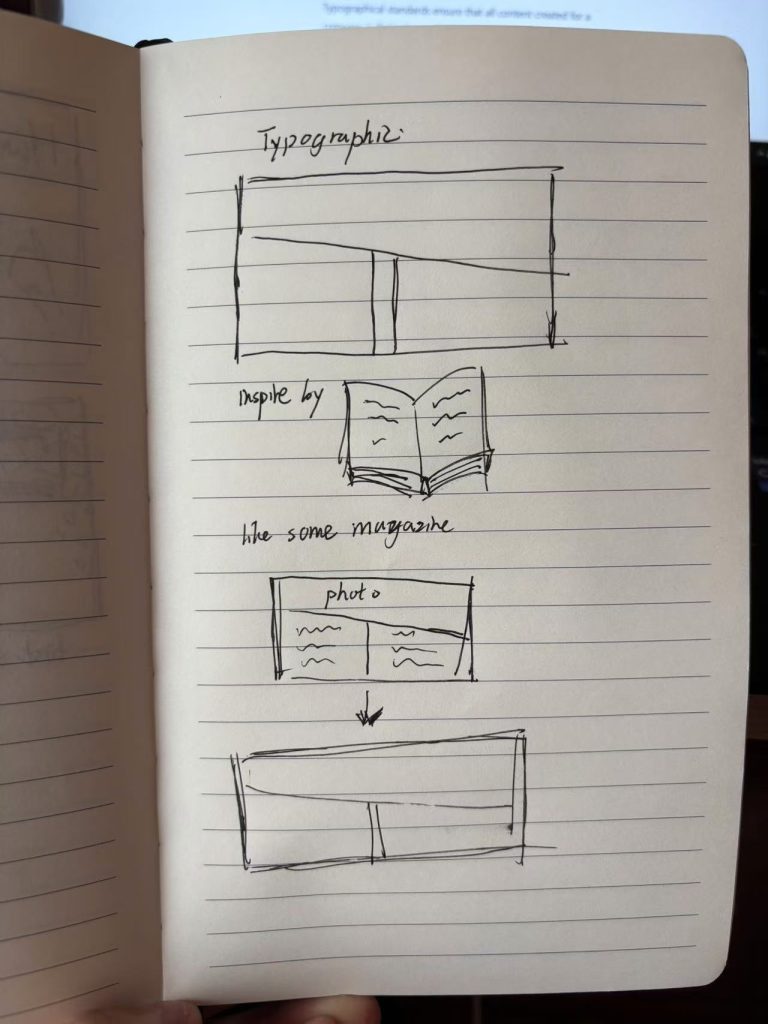 Typographical standards ensure that all content created for a
Typographic.
inspire by
like some magazine
photo